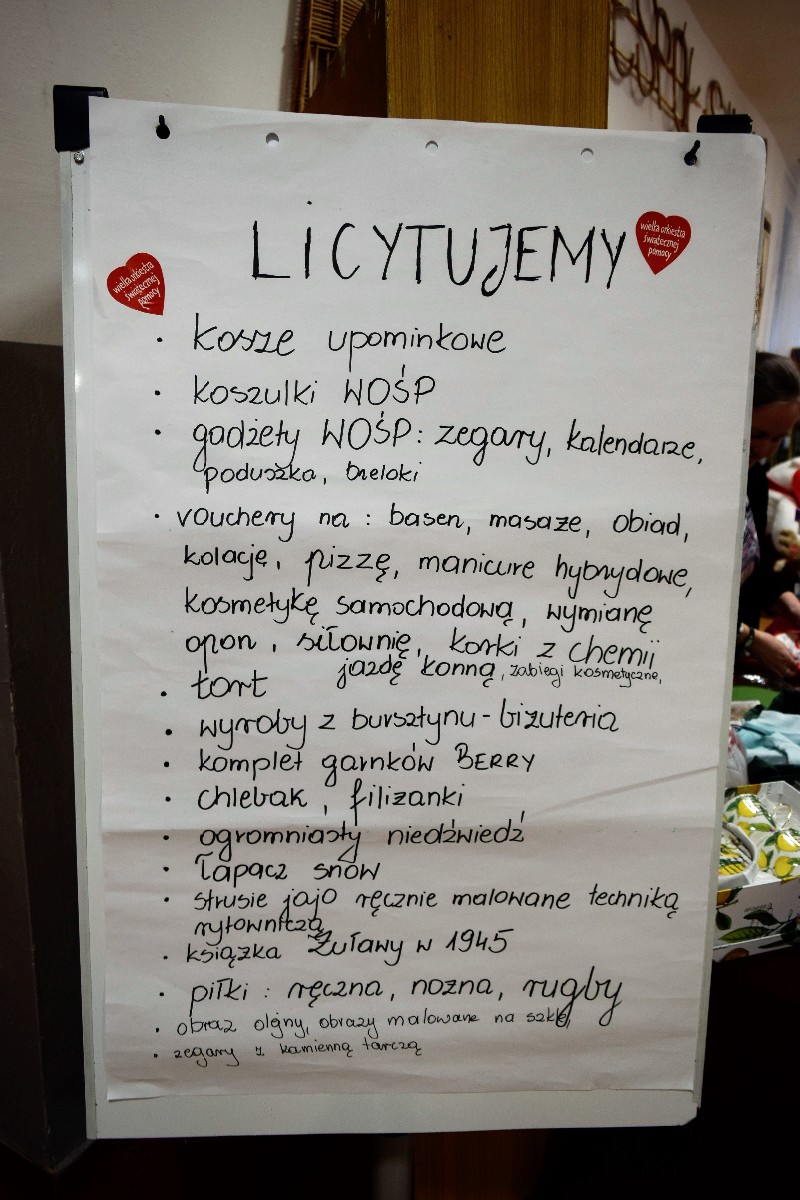 LICYTUJEMY
wielka orkiestra
świątecznej
pomocy
wielka orkiestra
świątecznej
pomocy
• kosze upominkowe
• koszulki WOŚP
• gadżety WOŚP: zegary, kalendarze,
poduszka, breloki
• vouchery na: basen, masaże, obiad,
kolację, pizzę, manicure hybrydowe,
kosmetykę samochodową, wymianę
opon, siłownię, korki z chemii
jazdę konną, zabiegi kosmetyczne,
• tort
• wyroby z bursztynu - biżuteria
• komplet garnków BERRY
• chlebak, filiżanki
• ogromniasty niedźwiedź
• łapacz snów
• strusie jajo ręcznie malowane techniką
rytowniczą
• książka Żuławy w 1945
• piłki: ręczna, nożna, rugby
• obraz olejny, obrazy malowane na szkle,
• zegary z kamienną tarczą